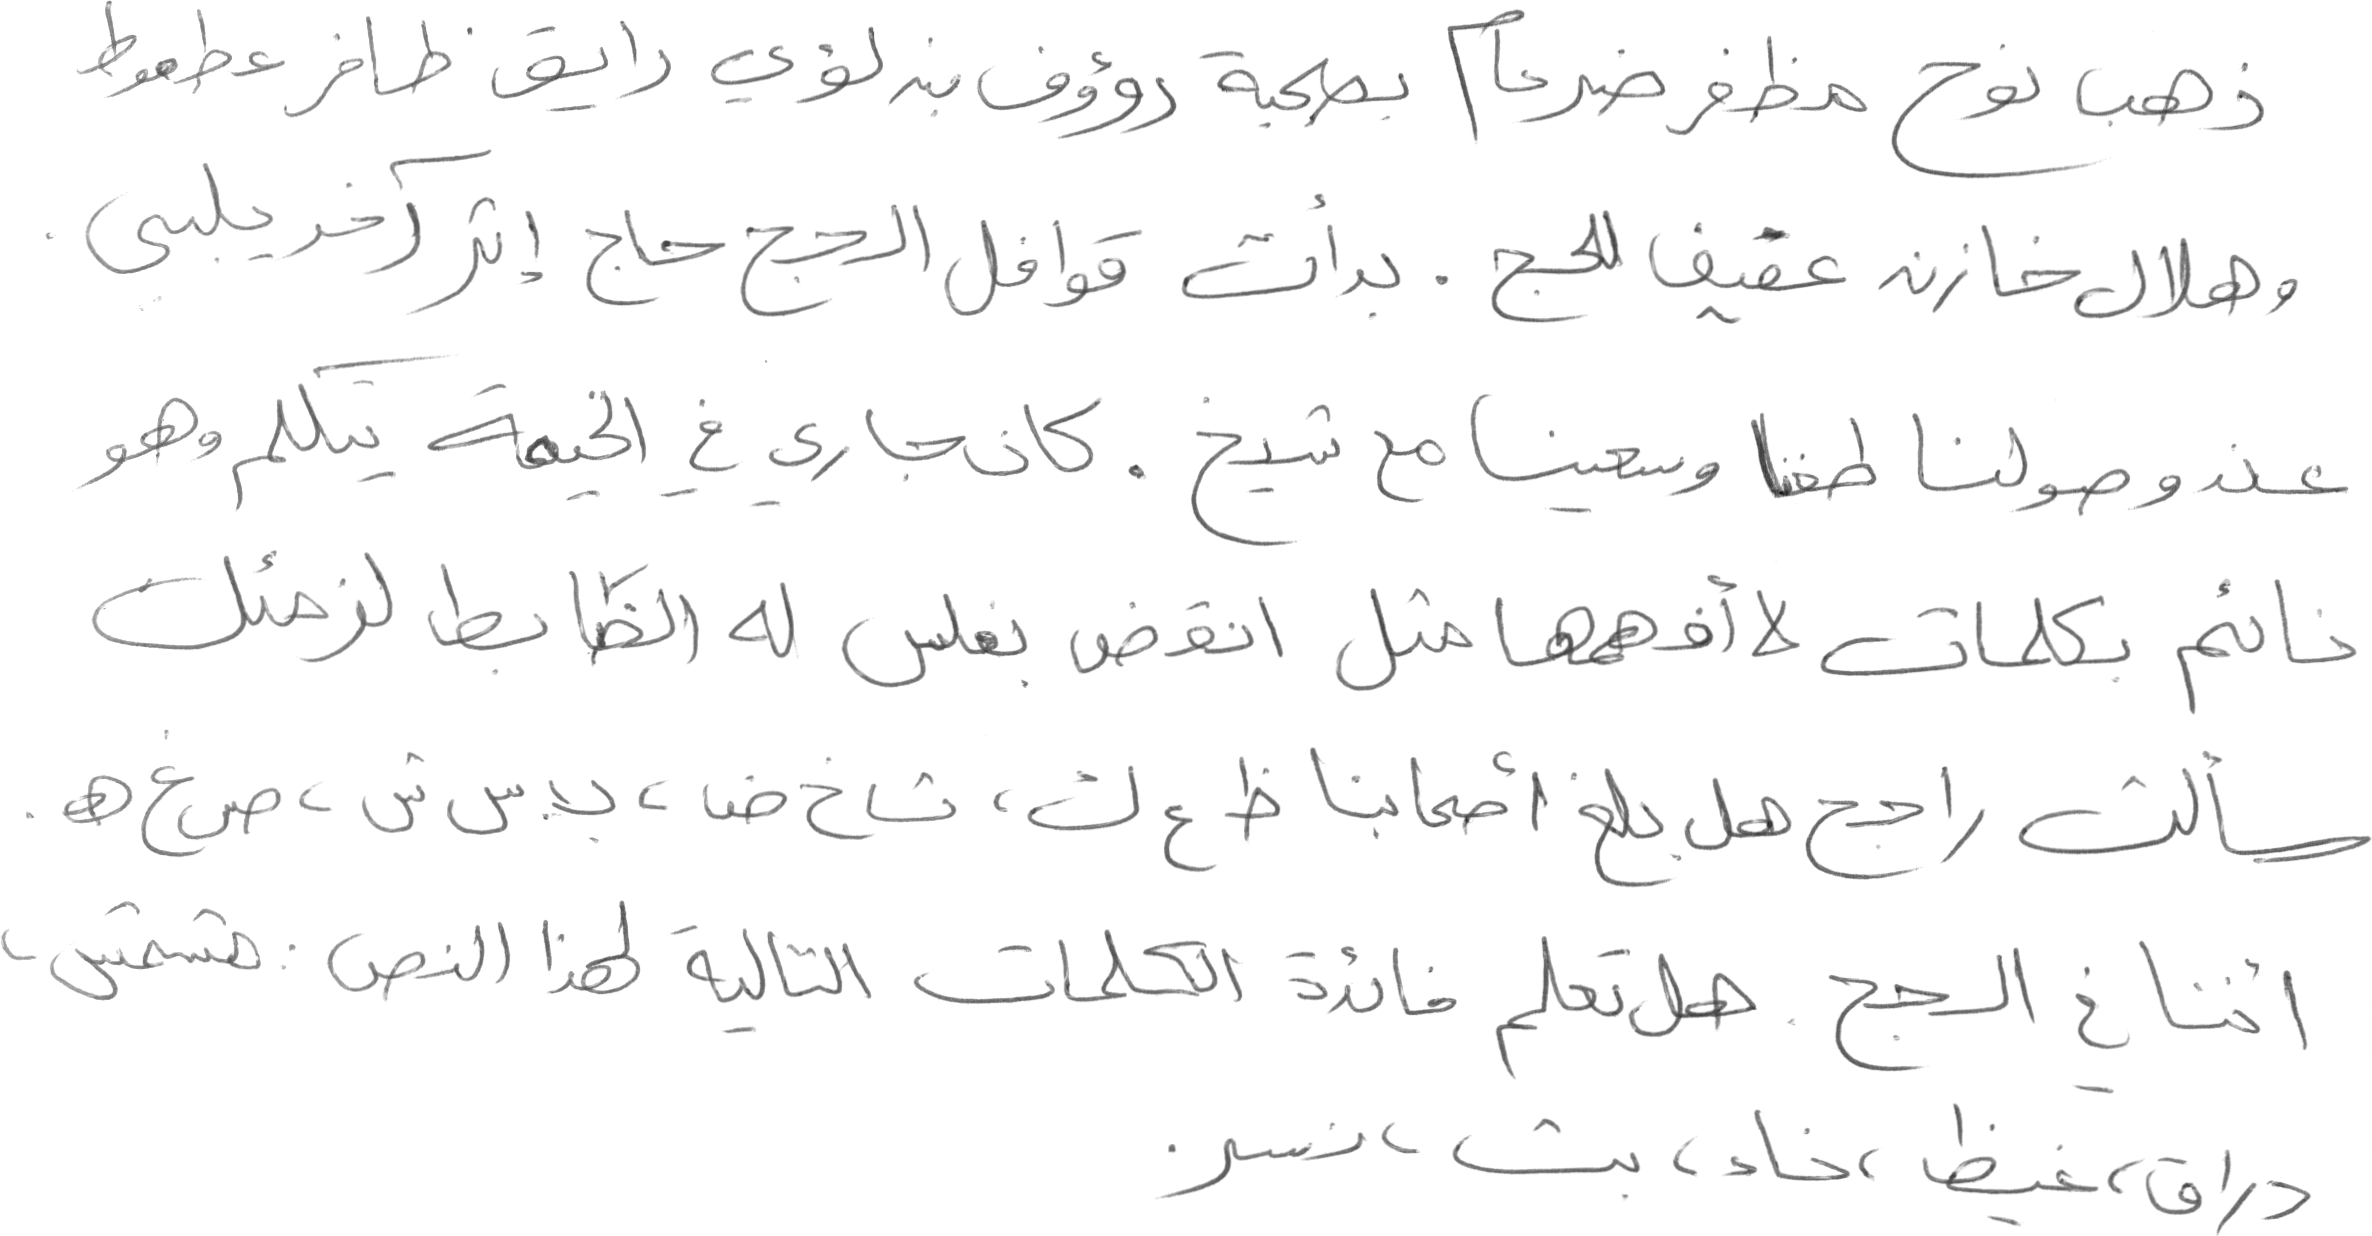 ذهب نوح مظفر ضرغام بصحبة رؤوف بن لؤي رايق ظافر عطعوط
وهلال خازن عفيف للحج . بدأت قوافل الحجج حاج إثر آخر يلبي .
عند وصولنا طفنا وسعينا مع شيخ . كان جاري في الخيمة يتكلم وهو
نائم بكلمات لا أفهمها مثل انقض بغلس له الضابط لزملك
سألت راجح هل بلغ أصحابنا ظ ع ث ، شاخ ضا ، ب س ش ، ص غ ه .
اثنا في الحجج . هل تعلم فائدة الكلمات التالية لهذا النص : مشمش ،
دراق ، غيظ ، خاد ، بث ، نسر .